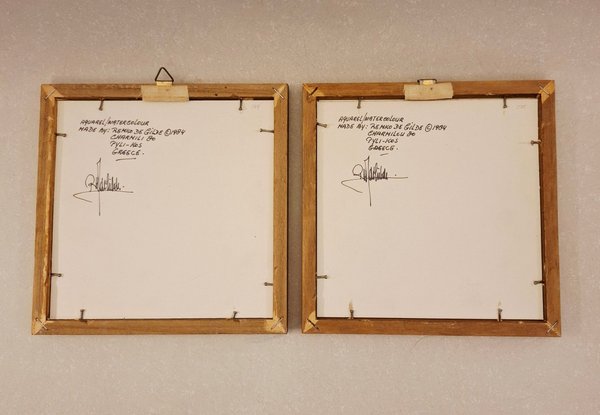 AQUAREL/WATERCOLOUR
MADE BY: REMKO DE GILDE © 1984
CHARMILI 80
PYLI-KOS
GREECE.
AQUAREL/WATERCOLOUR
MADE BY: REMKO DE GILDE © 1984
CHARMILOU 80
PYLI-KOS
GREECE.